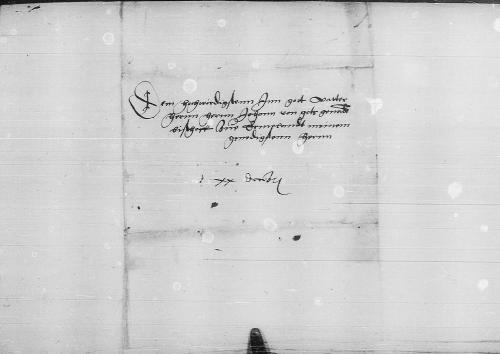 Dem hochwirdigstenn Inn got Vatter
herrn herrn Johann von gots genad
bischove zue meinem
genedigstenn herrn
xx